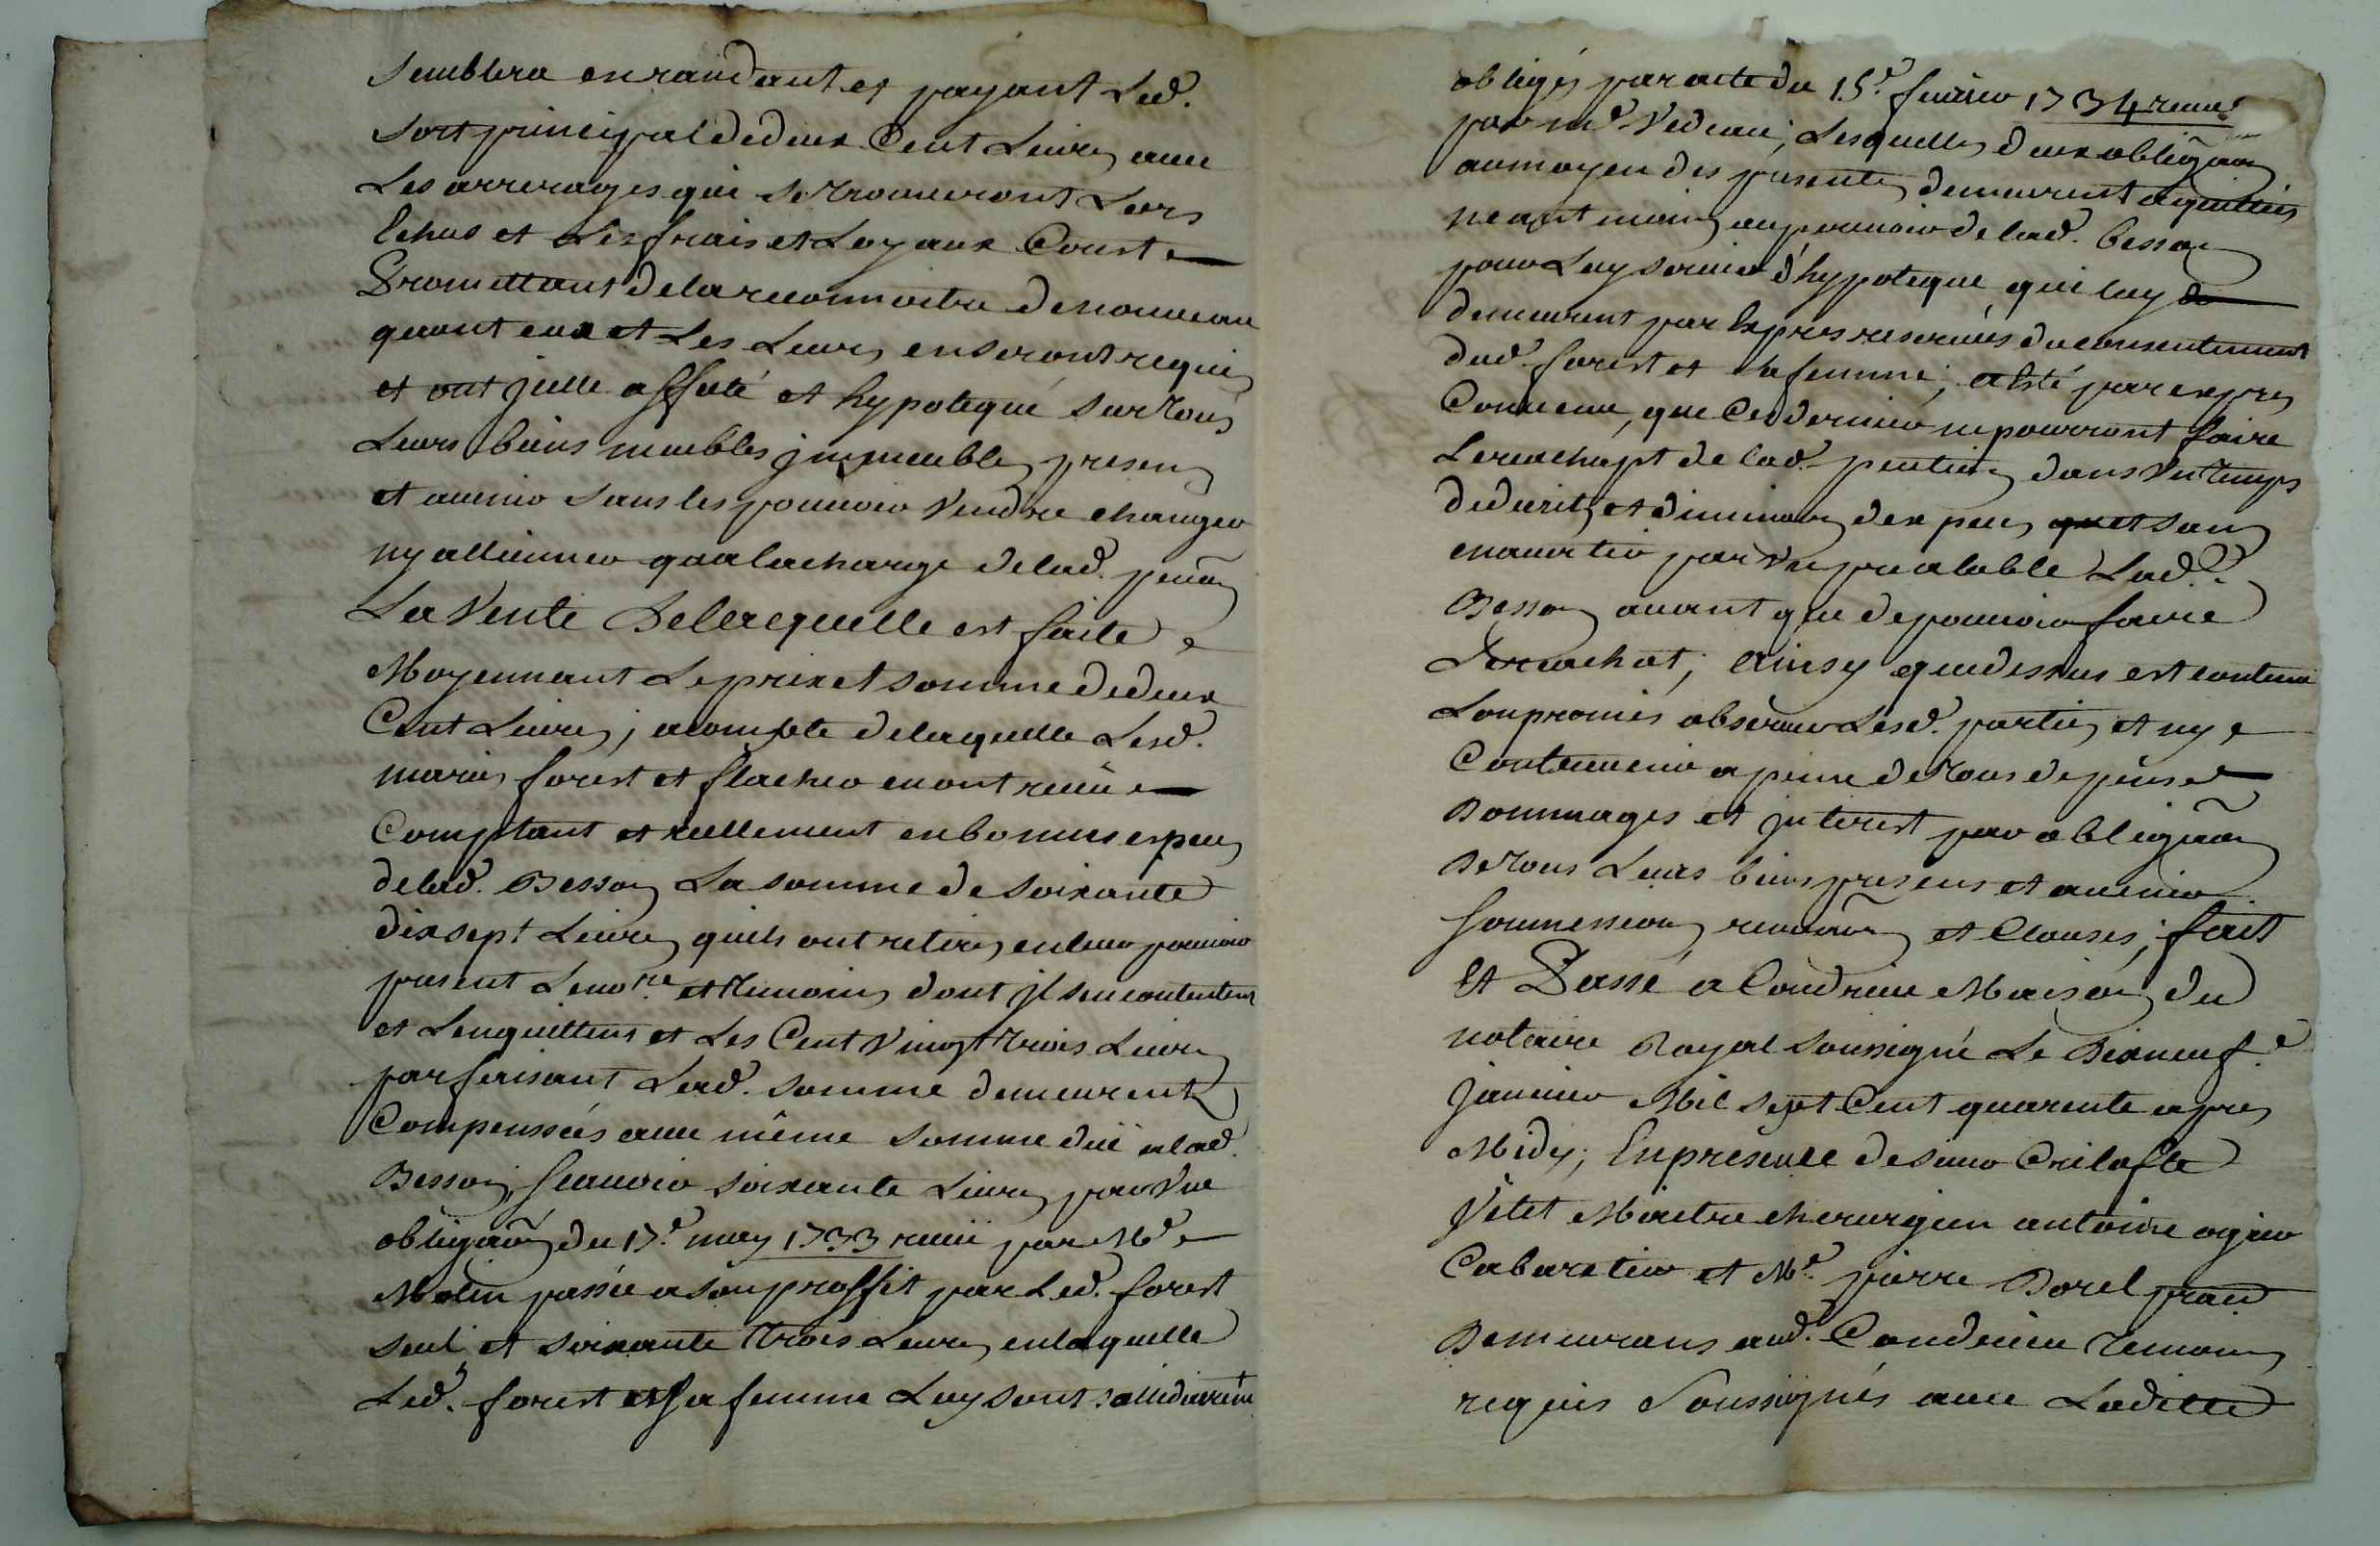 semblera en randant et payant Led.
sort principal de deux Cent Livres avec
Les arrerages qui se trouveront Lors
Echus et Les frais et Loyaux Couste
Promettant de la reconnoitre de nouveau
quant eux et Les Leurs en seront requis
et ont jcelle affeté et hypotequé sur tous
Leurs biens meubles jmmeubles presens
et avenir sans les pouvoir Vendre changer
ny allienner qua la charge de lad. penōn
La Vente De Lacquelle est faite
Moyennant Le prix et somme de deux
Cent Livres; acompte de laquelle Lesd.
mariés forest et flacher en ont reçu
Comptant et reellement en bonnes especes
de lad. Besson La somme de soixante
dixsept Livres quils ont retirés en leur pouvoir
present Le nore. et temoins dont jl sen contentent
et Lenquittent et Les Cent Vingt trois Livres
parfaisant Lad. somme demeurent
Compensées avec même somme düe a lad.
Besson, scauoir soixante Livres par Vne
obligāon du 17e. may 1733 reçüe par Me
Molin passée a son proffit par Led. forest
seul et soixante trois Livres en laquelle
Led. forest et sa femme Luy sont sollidairemt
obligés par acte du 15e. feurier 1734 receu
par Me Vedeau; Lesquelles deux obligāon
au moyen des presentes demeurent aquittées
neantmoins au pouuoir de lad. besson
pour Luy seruir d'hypoteque qui luy
demeurent par Expres reservées du consentement
dud. forest et sa femme; a esté par expres
Convenu, que Ces derniers ne pourront faire
Le reachapt de lad. pention dans Vn temps
de decrit et diminōn despeces et sans
en avertir par Vn prealable Lad.e
Besson auant que de pouuoir faire
Le reachat; Ainsy que dessus est contenu
Lon promis observer Lesd. parties et ny
Contrevenir a peine de tous depens
Dommages et jnterest par obligāon
De tous Leurs biens presens et avenir.
soumession renonāon et Clauses; fait
Et Passé a Condrieu Maison du
notaire Royal soussigné Le Dixneufe.
Janvier Mil sept Cent quarente apres
Midy; En presence de sieur
Vitet Maitre cherurgien antoine ogier
Cabaretier et Me. pierre Borel pratn
Demeurans aud. Condrieu temoins
requis soussignés avec Laditte